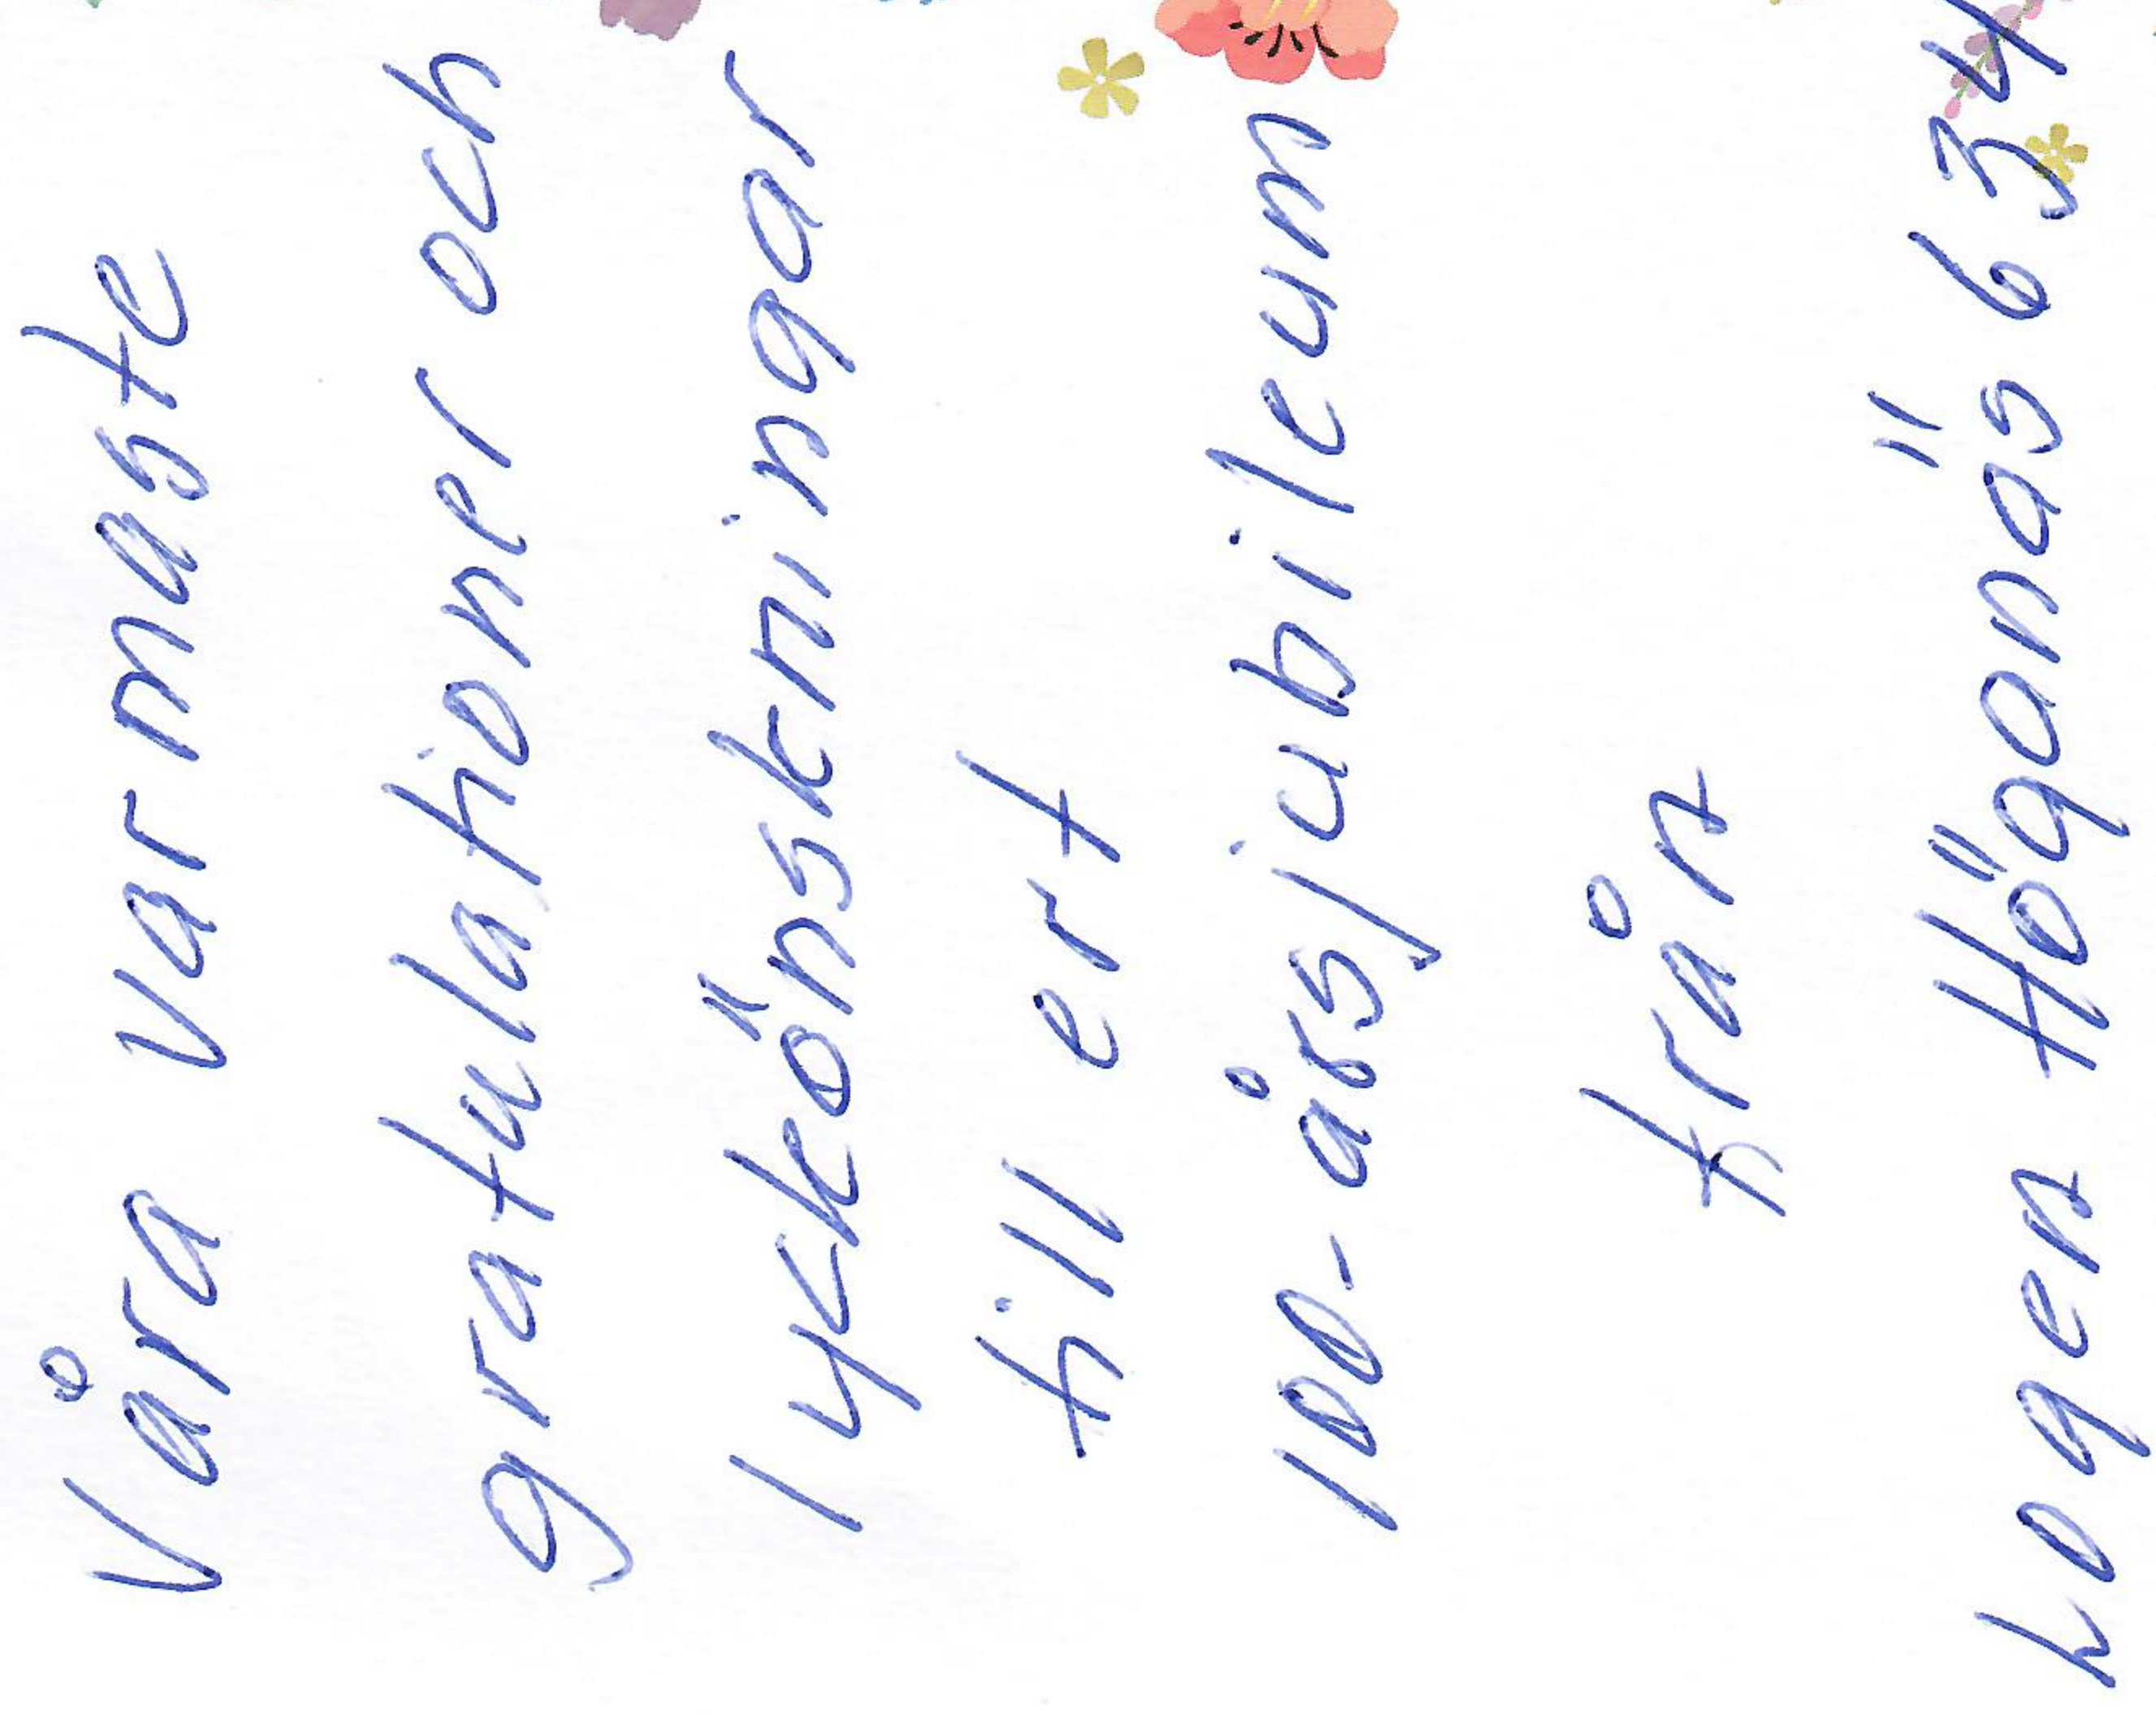 Våra varmaste
gratulationer och
lyckönskningar
till ert
100-årsjubileum
från
Logen Höganäs 634